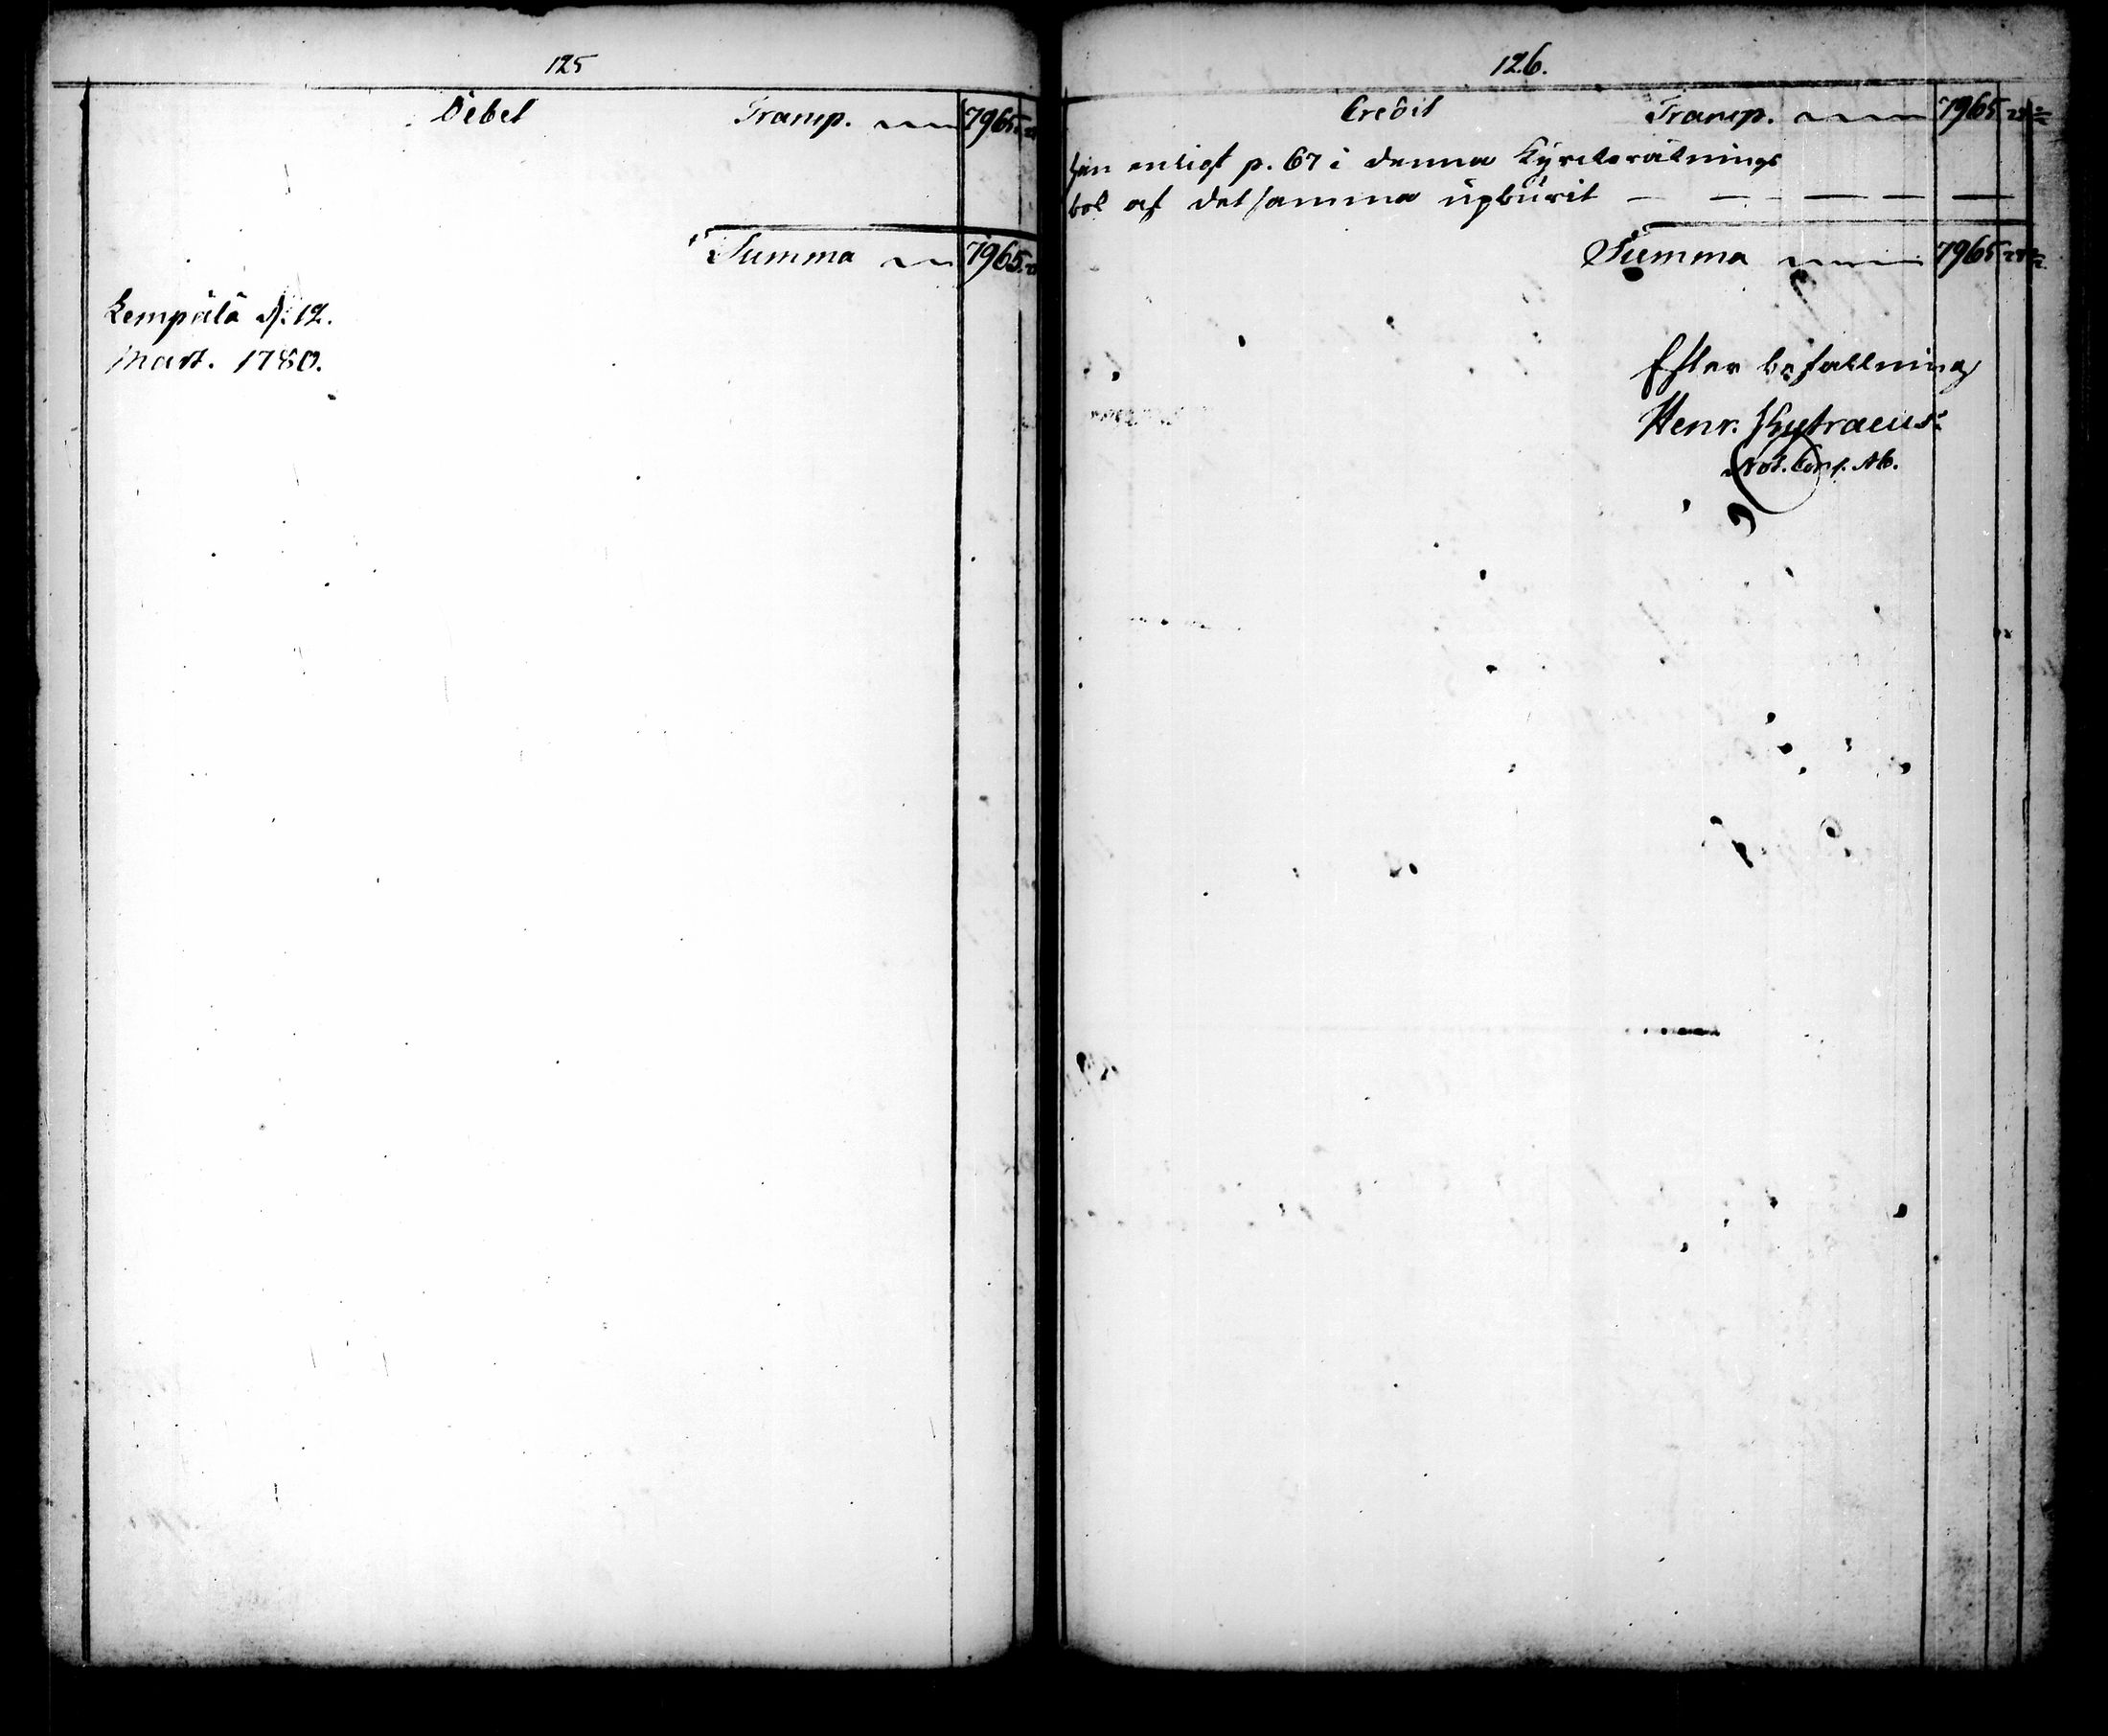 125
Debet Transp. 7965.
Summa 7965.
Lempälä d. 12.
Mart. 1780.
126.
Credit Transp. 7965
sen enligt p. 67 i denna Kyrckoräknings
bok af det samma upburit
Summa 7965
Efter befallning
Henr. Chytraeus
Not. Cons. Ab.